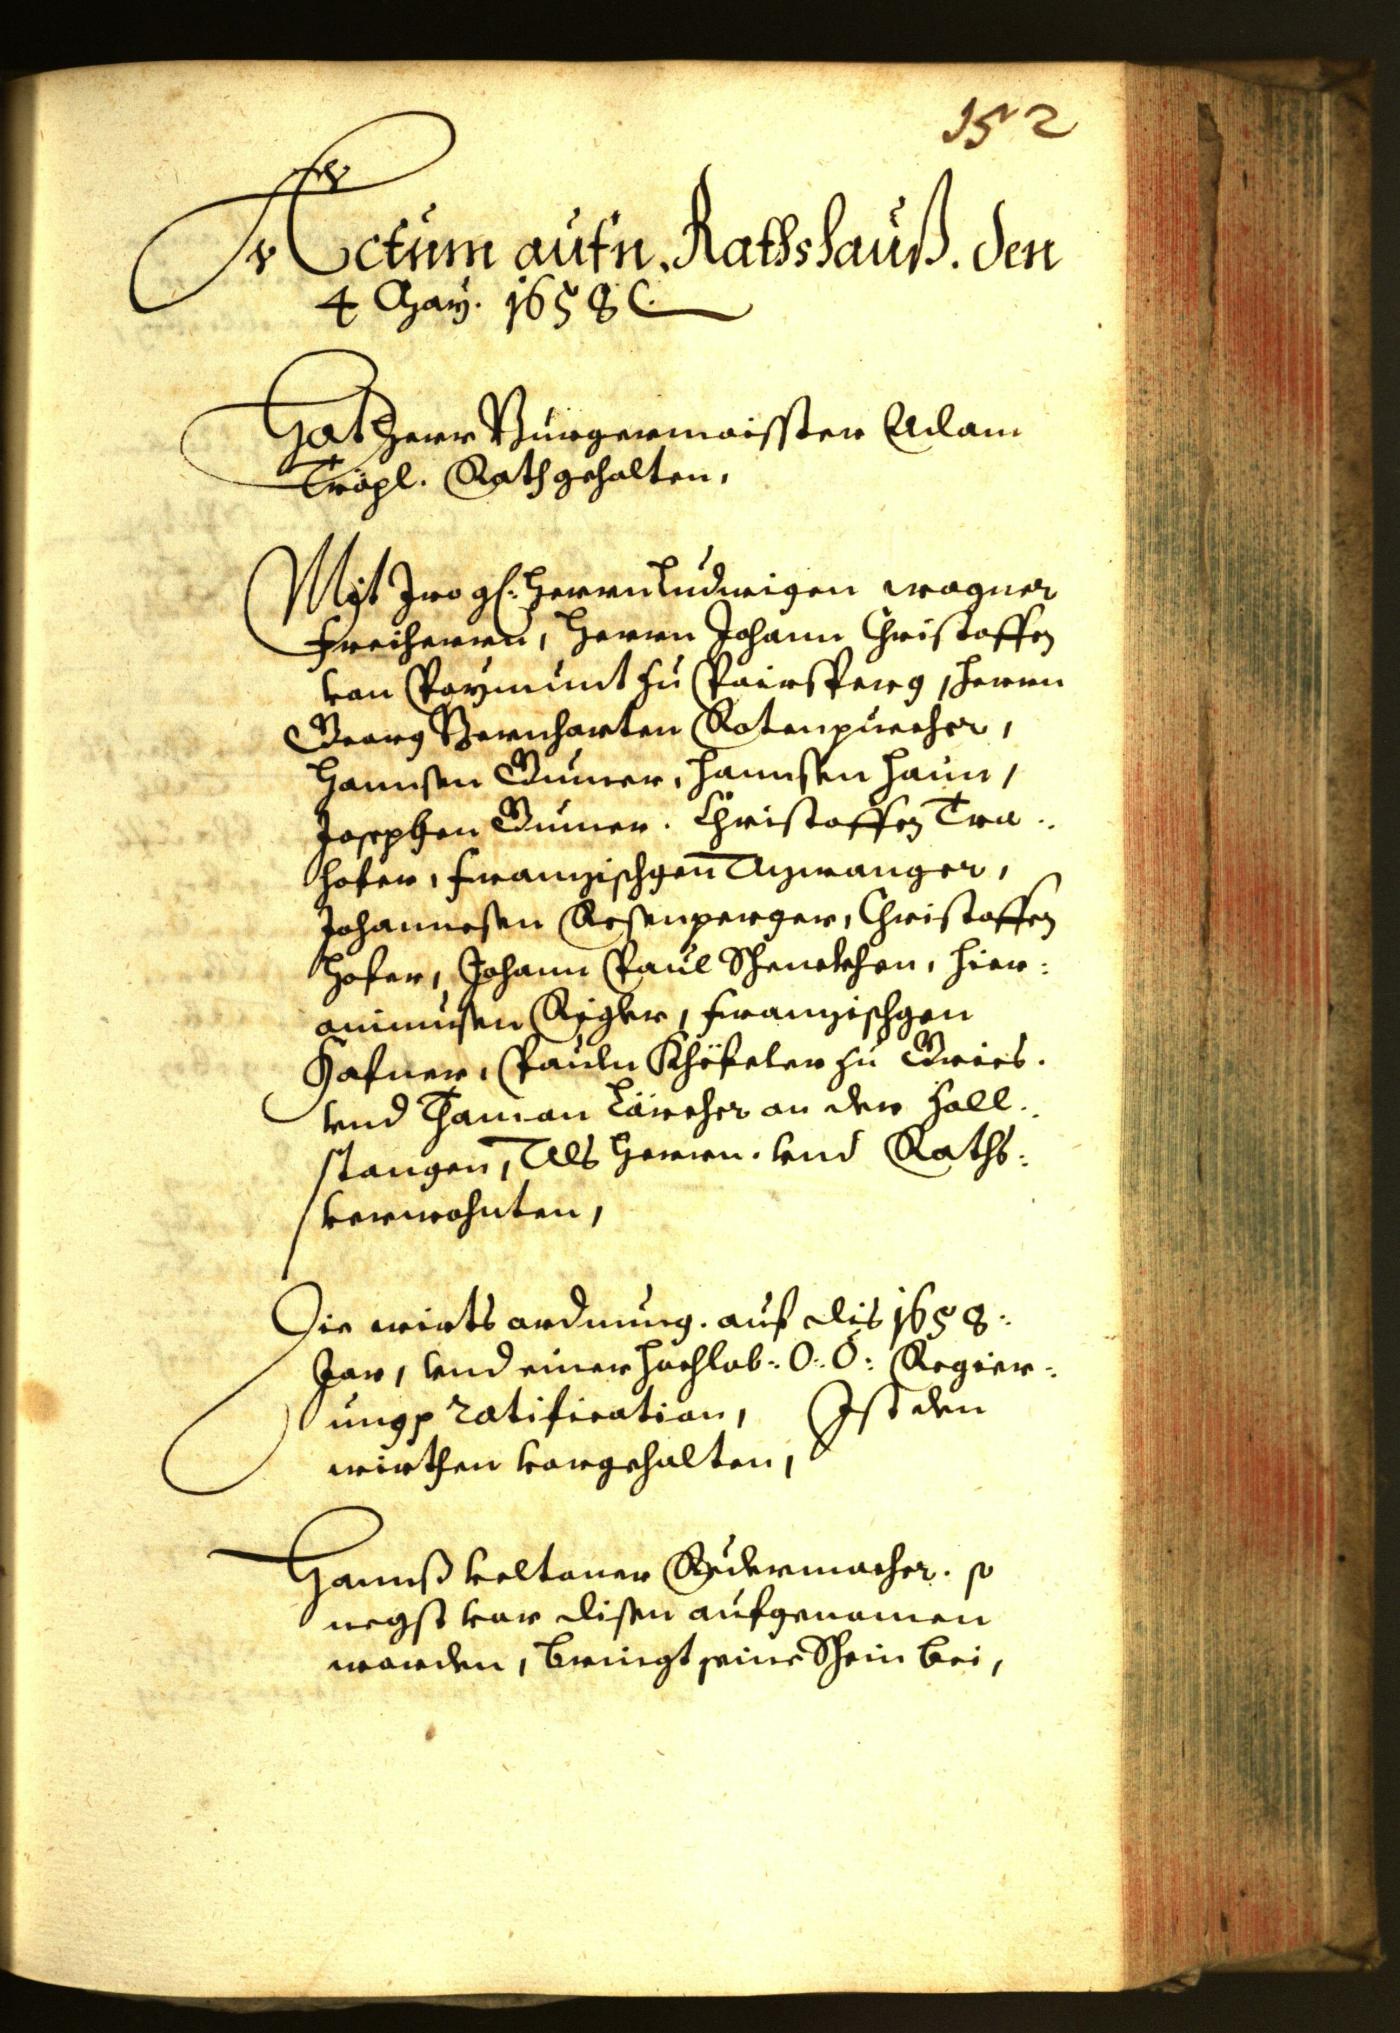 152
Actum aufn. Rathshauß. den
4 May. 1658
Hat Herr Burgermaisster Adam
Träpl. Rath gehalten,
Mit Iro gl: Herrn Ludwigen wagner
freiherrn, Herrn Johann Christoffen
von Paymunt zu Pairsperg, herrn
Georg Bernharten Rotenpuecher,
Hannsen Gumer, hannsen haun,
Josephen Gumer. Christoffen Tra:
hofer, Franzischgen Azwanger,
Johannesen Rosenperger, Christoffen
Hofer, Johann Paul Schenckhen, hier:
onimusen Rigler, Franzischgen
Hafner, Pauln Khöfeler zu Gries.
vnd Thaman Lärcher an der Hall:
stangen, Als Herrn. vnd Raths:
verwohnten,
Die wirts ordnung. auf dis 1658:
Jar, vnd einer hochlob: O: Ö: Regier:
ungs ratification, Ist den
wirthen vorgehalten,
Hannß veltaner Redermacher. so
negst vor disen aufgenomen
worden, bringt seine Schein bei,